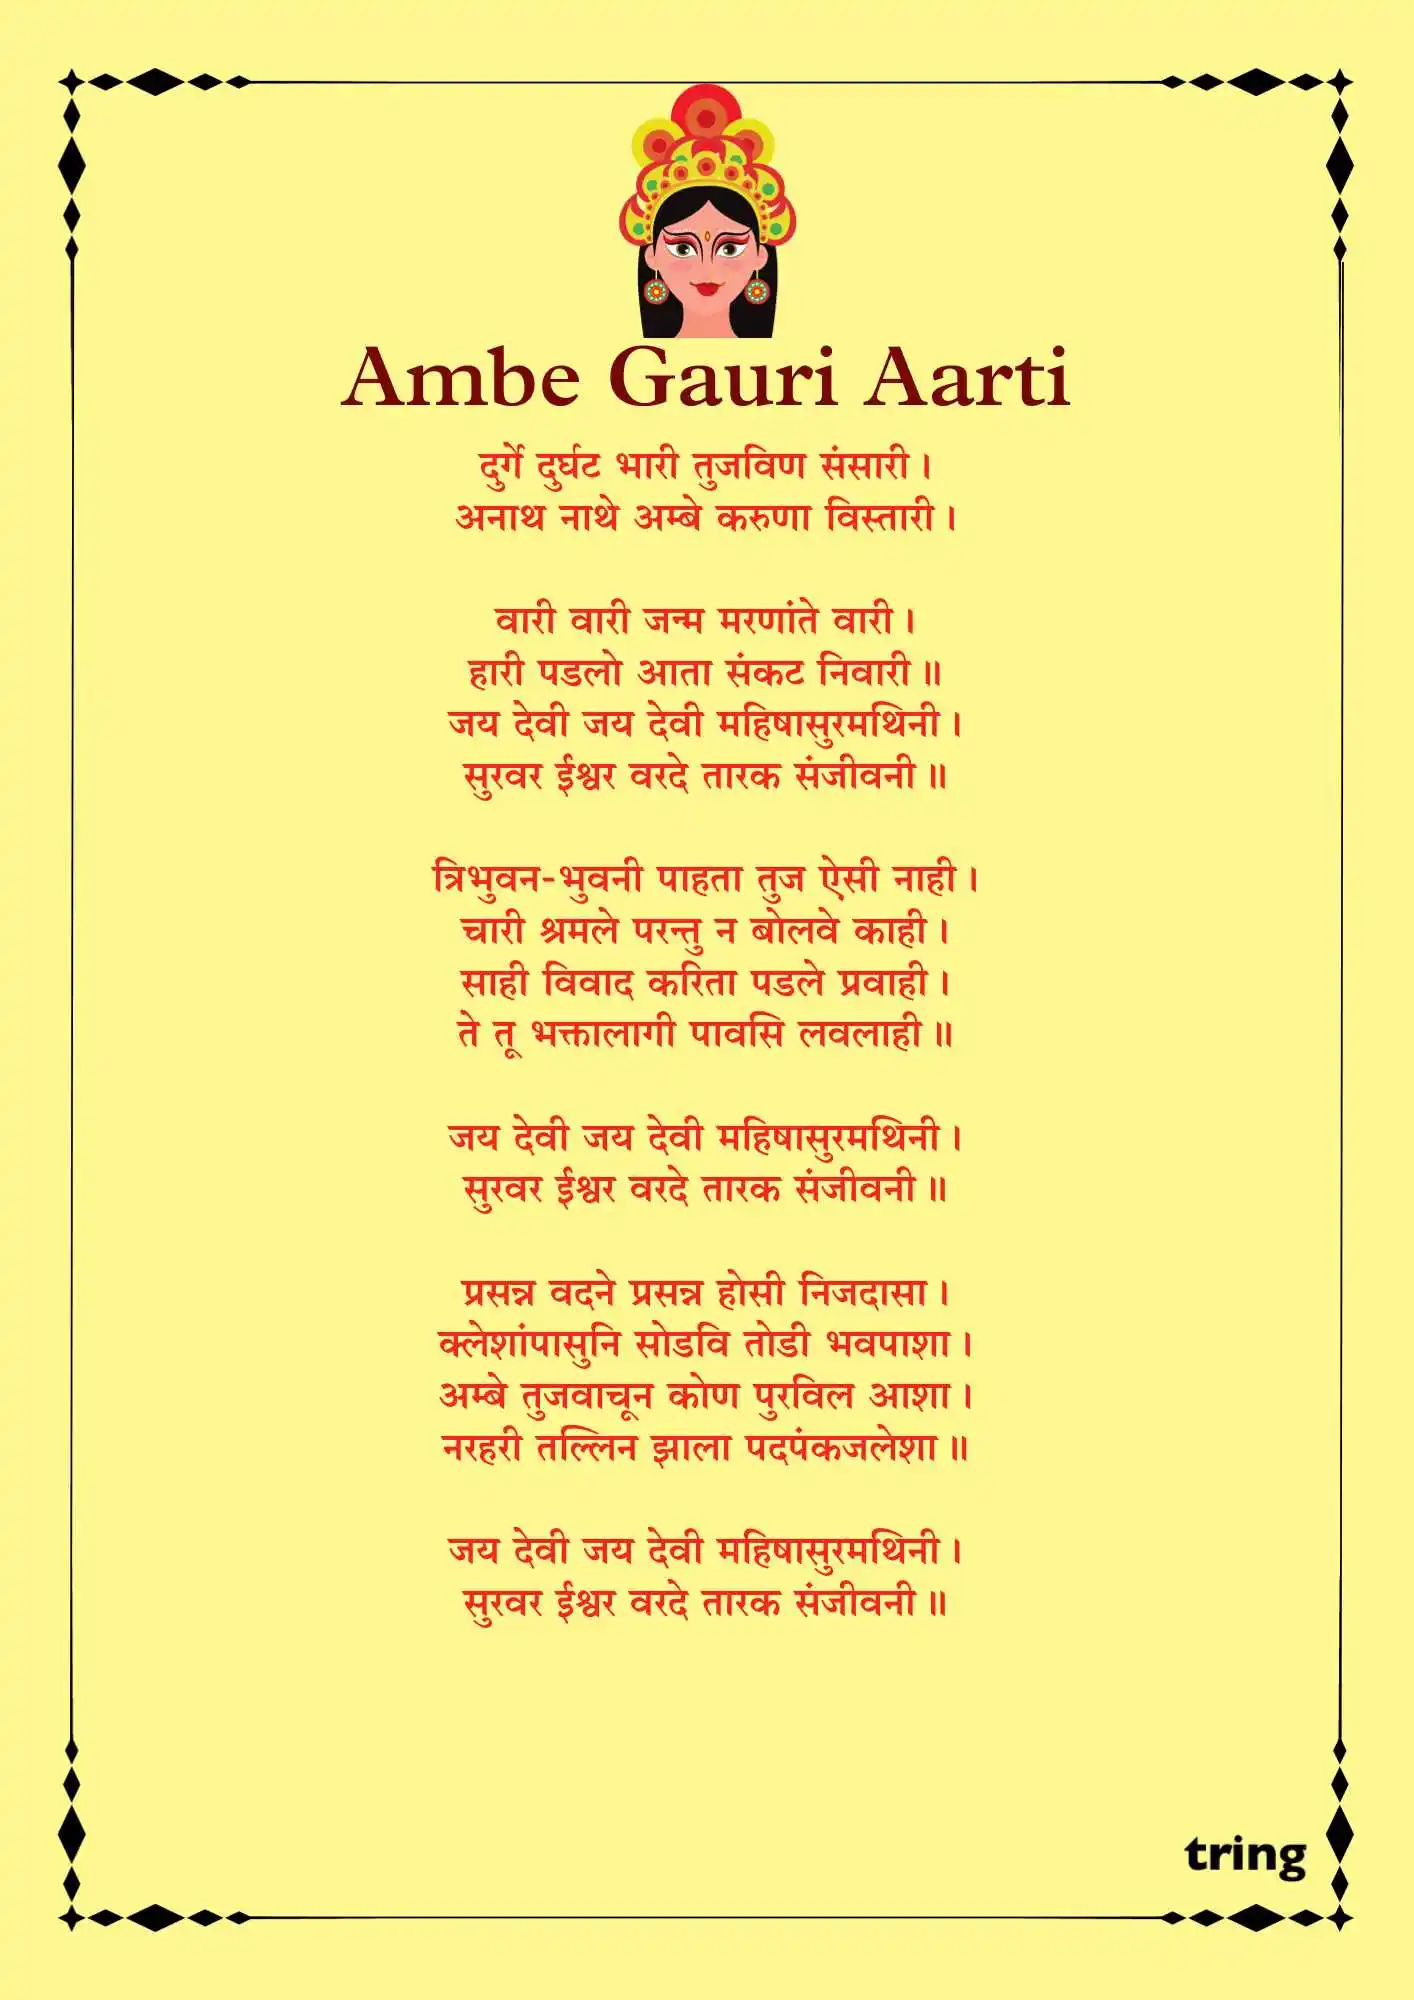 Ambe Gauri Aarti
दुर्गे दुर्घट भारी तुजविण संसारी।
अनाथ नाथे अम्बे करुणा विस्तारी।
वारी वारी जन्म मरणांते वारी।
हारी पडलो आता संकट निवारी॥
जय देवी जय देवी महिषासुरमथिनी।
सुरवर ईश्वर वरदे तारक संजीवनी॥
त्रिभुवन-भुवनी पाहता तुज ऐसी नाही।
चारी श्रमले परन्तु न बोलवे काही।
साही विवाद करिता पडले प्रवाही।
ते तू भक्तालागी पावसि लवलाही॥
जय देवी जय देवी महिषासुरमथिनी।
सुरवर ईश्वर वरदे तारक संजीवनी॥
प्रसन्न वदने प्रसन्न होसी निजदासा।
क्लेशांपासुनि सोडवि तोडी भवपाशा।
अम्बे तुजवाचून कोण पुरविल आशा।
नरहरी तल्लिन झाला पदपंकजलेशा॥
जय देवी जय देवी महिषासुरमथिनी।
सुरवर ईश्वर वरदे तारक संजीवनी॥
tring